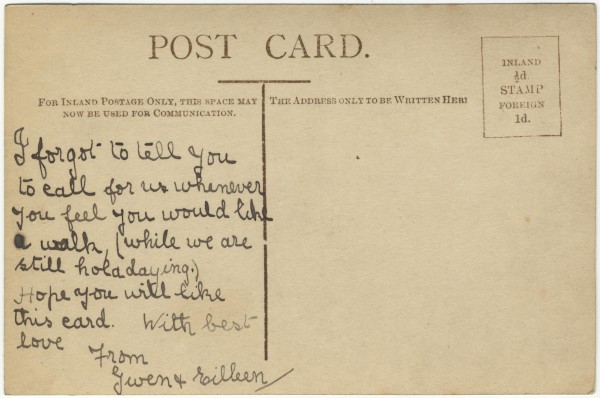 POST CARD.
FOR INLAND POSTAGE ONLY, THIS SPACE MAY
NOW BE USED FOR COMMUNICATION.
THE ADDRESS ONLY TO BE WRITTEN HERE
INLAND
½d.
STAMP
FOREIGN
1d.
I forgot to tell you
to call for us whenever
you feel you would like
a walk, (while we are
still holadaying.)
Hope you will like
this card. With best
love
From
Gwen & Eilleen